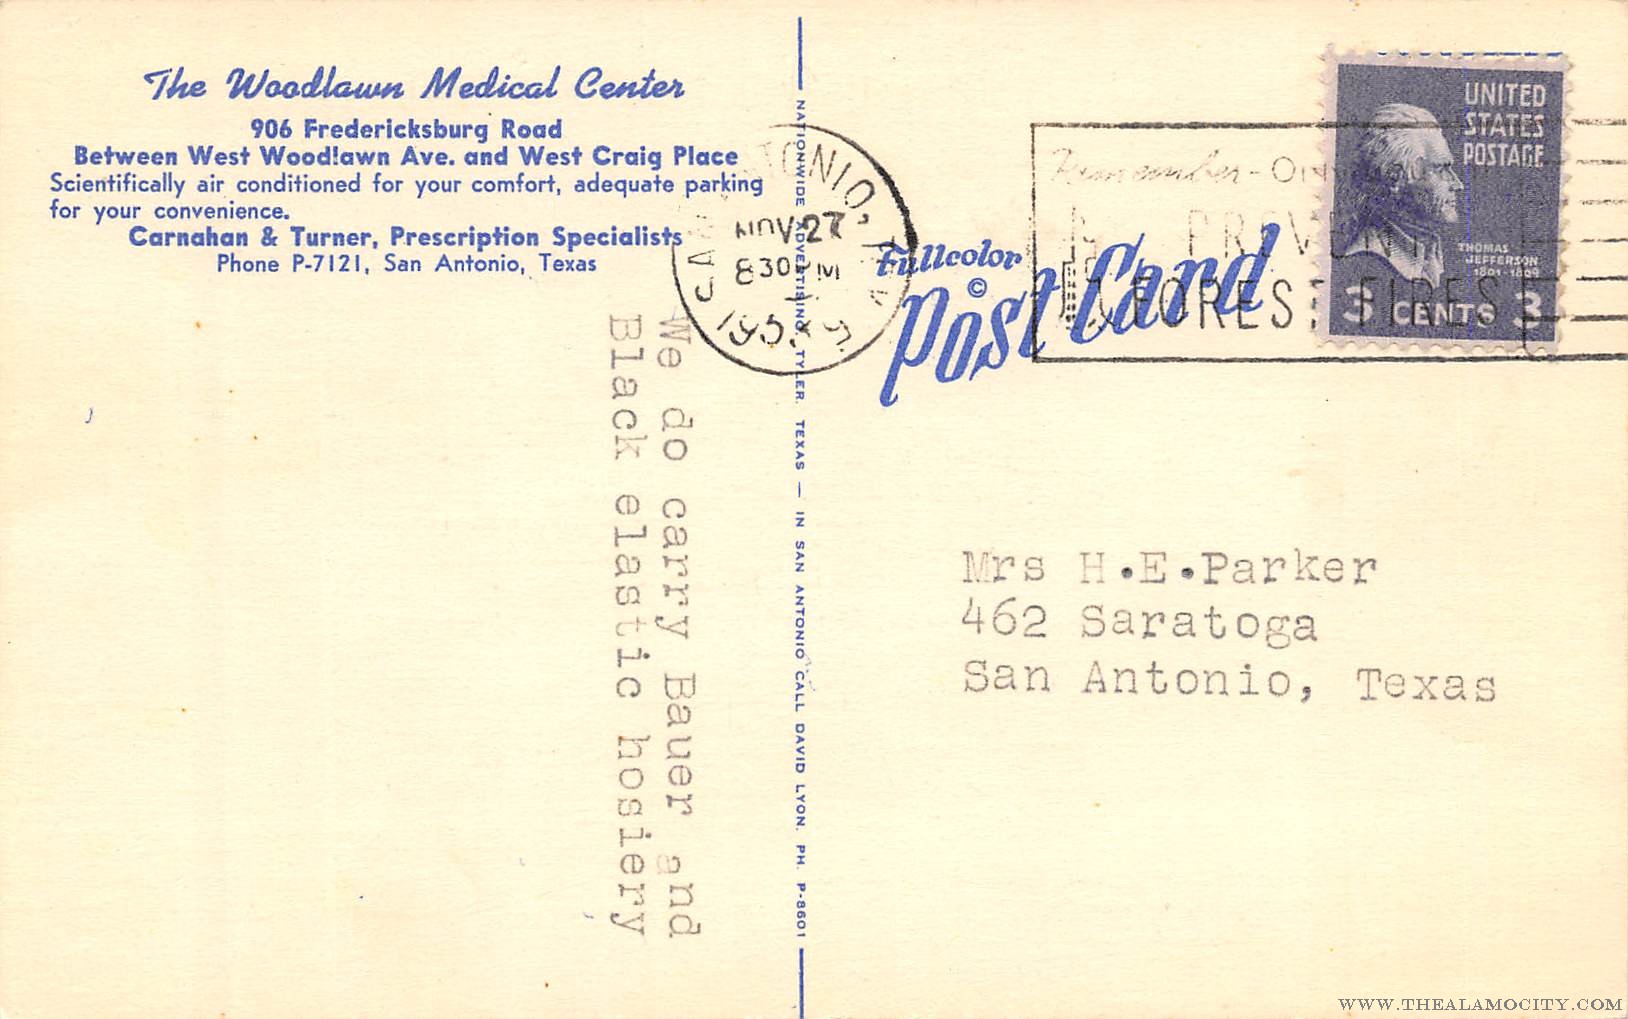 The Woodlawn Medical Center
906 Fredericksburg Road
Between West Woodlawn Ave. and West Craig Place
Scientifically air conditioned for your comfort, adequate parking
for your convenience.
Carnahan & Turner, Prescription Specialists
Phone P-7121, San Antonio, Texas
We do carry Bauer and
Black elastic hosiery
NATION-WIDE ADVERTISING, TYLER, TEXAS — IN SAN ANTONIO CALL DAVID LYON, PH. P-8601
NOV 27
8 30 PM
Fullcolor
©
Post Card
Remember - Only
PREVENT
FOREST FIRES
UNITED
STATES
POSTAGE
THOMAS
JEFFERSON
1801-1809
3 CENTS 3
Mrs H.E.Parker
462 Saratoga
San Antonio, Texas
WWW.THEALAMOCITY.COM